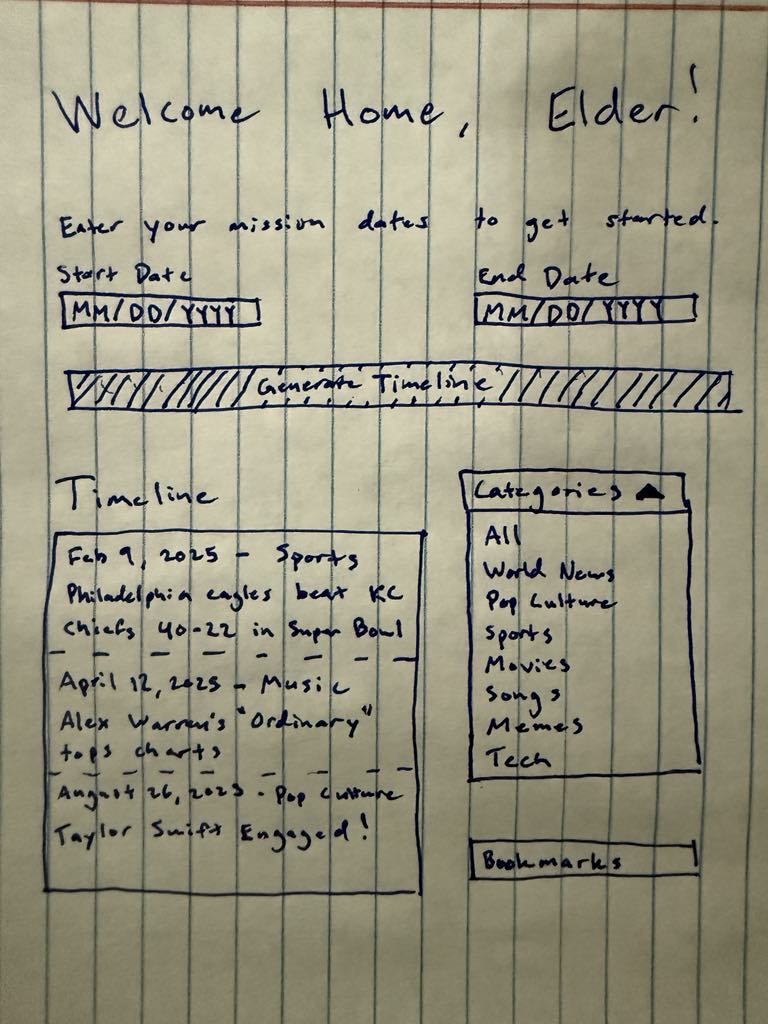 Welcome Home, Elder!
Enter your mission dates to get started.
Start Date
End Date
MM/DD/YYYY
MM/DD/YYYY
Generate Timeline
Timeline
Feb 9, 2025 - Sports
Philadelphia eagles beat KC
Chiefs 40-22 in Super Bowl
April 12, 2025 - Music
Alex Warren's "Ordinary"
tops charts
August 26, 2025 - Pop Culture
Taylor Swift Engaged!
Categories ▲
All
World News
Pop Culture
Sports
Movies
Songs
Memes
Tech
Bookmarks